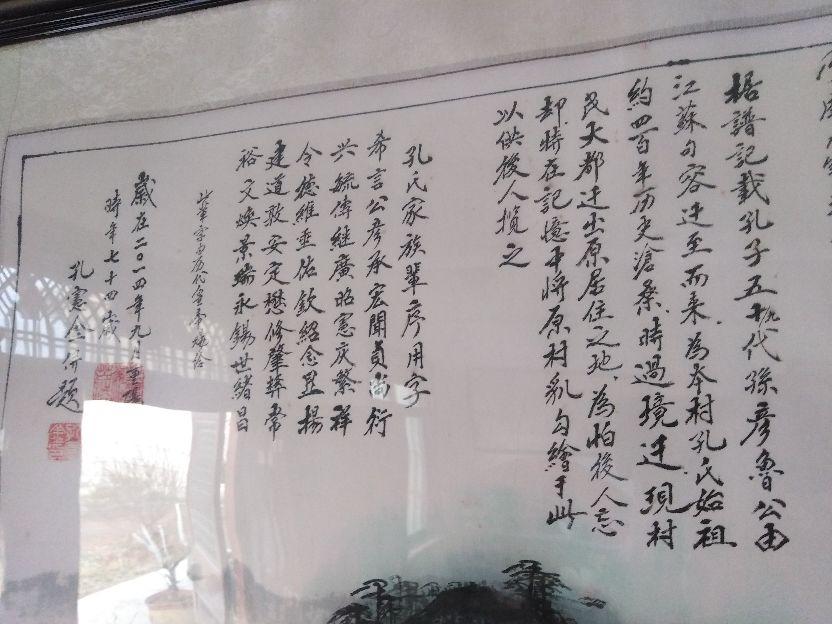 据譜記載孔子五十九代孫彦魯公由
江蘇句容迁至而来.為本村孔氏始祖
約四百年历史滄桑.時過境迁現村
民大都迁出原居住之地.為怕後人忘
却.特在記憶中将原村貌勾繪于此
以供後人揽之
孔氏家族輩序用字
希言公彦承宏聞貞尚衍
兴毓傳继廣昭憲庆繁祥
令德維垂佑欽紹念显揚
建道敦安定懋修肇彝常
裕文焕景瑞永錫世緒昌
此輩字由历代皇帝
歲在二〇一四年九月重
時年七十四歲
孔憲 并題